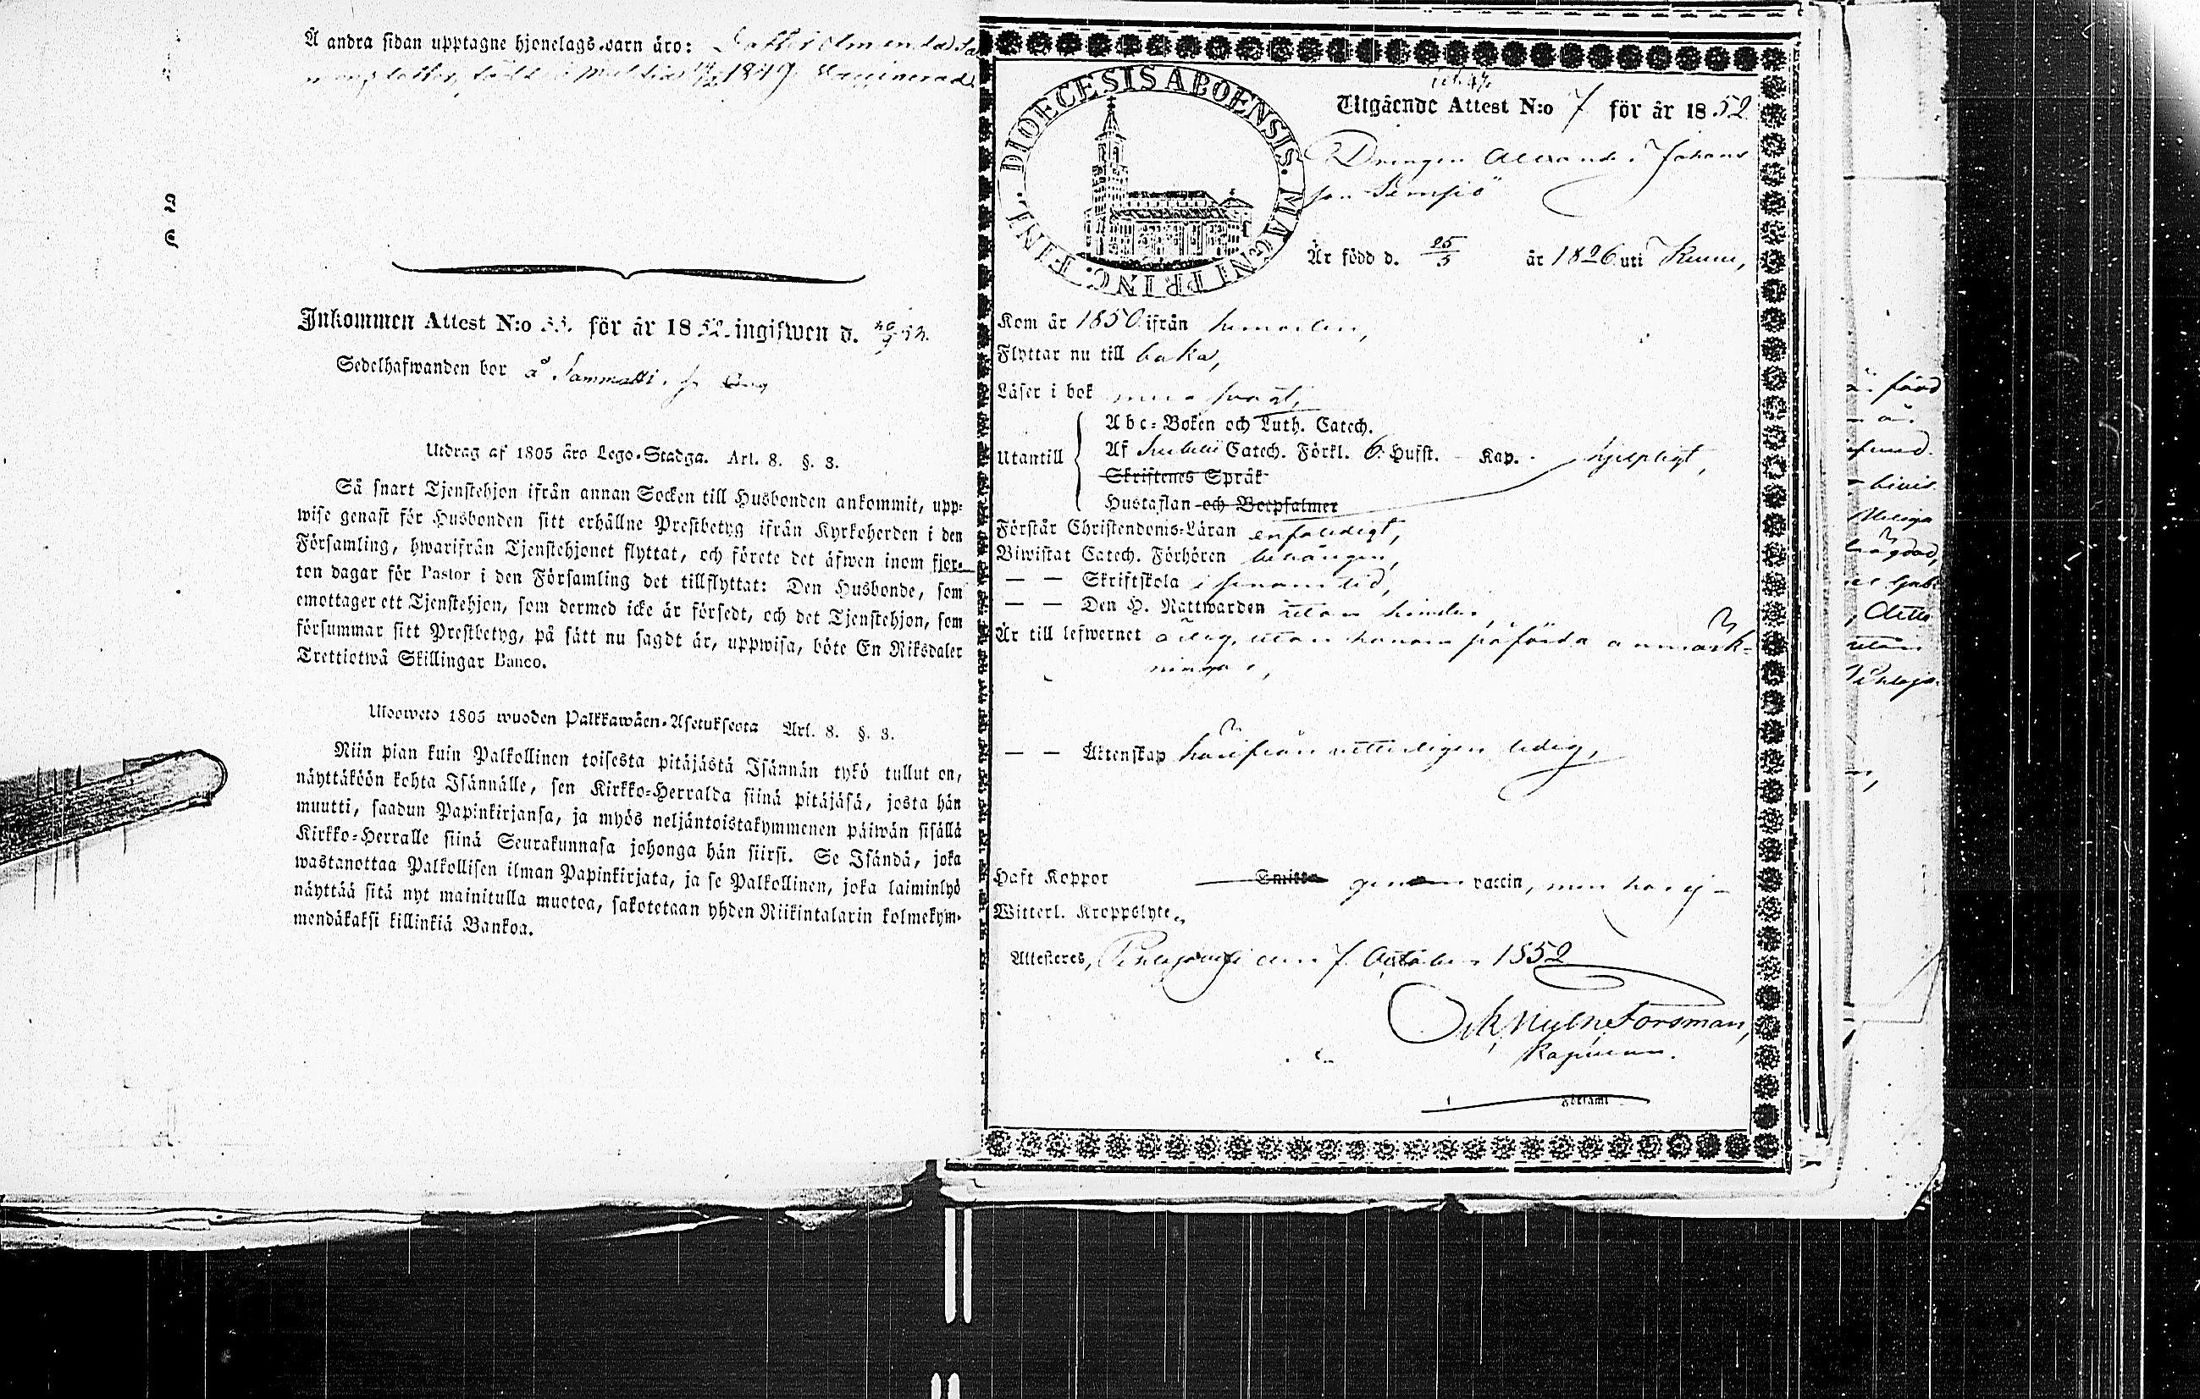 Å andra sidan upptagne hjonelags barn äro:
född i 1849. Vaccinerad.
Inkommen Attest N:o 55. för år 1852. ingifwen d.
Sedelhafwanden bor å Sammatti
Utdrag af 1805 års Lego-Stadga. Art. 8. §. 3.
Så snart Tjenstehjon ifrån annan Socken till Husbonden ankommit, upp-
wise genast för Husbonden sitt erhållne Prestbetyg ifrån Kyrkoherden i den
Församling, hwarifrån Tjenstehjonet flyttat, och förete det äfwen inom fjor-
ton dagar för Pastor i den Församling det tillflyttat: Den Husbonde, som
emottager ett Tjenstehjon, som dermed icke är försedt, och det Tjenstehjon, som
försummar sitt Prestbetyg, på sätt nu sagdt är, uppwisa, böte En Riksdaler
Trettiotwå Skillingar Banco.
Ulosweto 1805 wuoden Palkkawäen-Asetuksesta Art. 8. §. 3.
Niin pian kuin Palkollinen toisesta pitäjästä Isännän tykö tullut on,
näyttäköön kohta Isännälle, sen Kirkko-Herralda siinä pitäjäsä, josta hän
muutti, saadun Papinkirjansa, ja myös neljäntoistakymmenen päiwän sisällä
Kirkko-Herralle siinä Seurakunnasa johonga hän siirsi. Se Isändä, joka
wastanottaa Palkollisen ilman Papinkirjata, ja se Palkollinen, joka laiminlyö
näyttää sitä nyt mainitulla muotoa, sakotetaan yhden Riikintalarin kolmekym-
mendäkaksi killinkiä Bankoa.
DIOECESIS ABOENSIS. MAGNI PRINC. FINL.
Utgående Attest N:o 7 för år 1852
Drengen Alexander Johans
son
Är född d. 25/3 år 1826 uti
Kom år 1850 ifrån
Flyttar nu till baka,
Läser i bok svagt,
Utantill
Abc-Boken och Luth. Catech.
Af Catech. Förkl. 6. Hufst. Kap. hjelpligt,
Skriftenes Språk
Hustaflan och Botpsalmer
Förstår Christendoms-Läran enfaldigt,
Biwistat Catech. Förhören behörigen,
— — Skriftskola i sinom tid,
— — Den H. Nattwarden utan hinder,
Är till lefwernet ärlig, utan honom påförda anmärk-
ningar,
— — Äktenskap härifrån vetterligen ledig,
Haft Koppor Smitta genom vaccin, men har ej
Witterl. Kroppslyte.
Attesteras, den 7 October 1852
Forsman,
Kapellan.